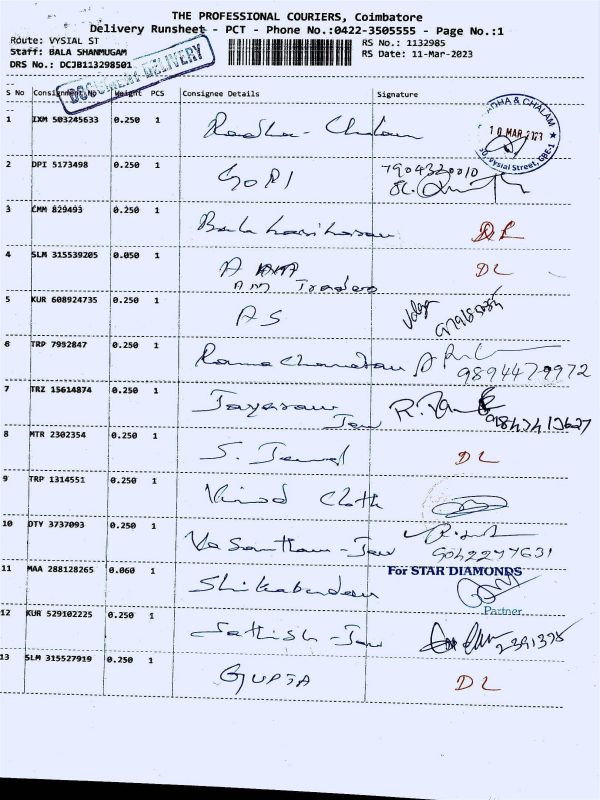 THE PROFESSIONAL COURIERS, Coimbatore
Delivery Runsheet - PCT - Phone No.:0422-3505555 - Page No.:1
Route: VYSIAL ST
RS No.: 1132985
Staff: BALA SHANMUGAM
RS Date: 11-Mar-2023
DRS No.: DCJB113298501
DOCUMENT DELIVERY
S No Consignment No Weight PCS Consignee Details Signature
1 IXM 503245633 0.250 1 Radha - Chalam
RADHA & CHALAM
10 MAR 2023
Vysial Street, CBE-1
2 DPI 5173498 0.250 1 GORI 7904320010
3 CMM 829493 0.250 1 Bala hariharan DL
4 SLM 315539205 0.050 1 A DL
AM Traders
5 KUR 608924735 0.250 1 AS
6 TRP 7992847 0.250 1 Rama Chandran 9894479972
7 TRZ 15614874 0.250 1 Jayaram
Jew
8 MTR 2302354 0.250 1 S. Jewel DL
9 TRP 1314551 0.250 1 Vinod Cloth
10 DTY 3737093 0.250 1 Vasantham - Jew
9042277631
11 MAA 288128265 0.060 1 For STAR DIAMONDS
Partner
12 KUR 529102225 0.250 1 Sathish - Jew 2391395
13 SLM 315527919 0.250 1 GUPTA DL